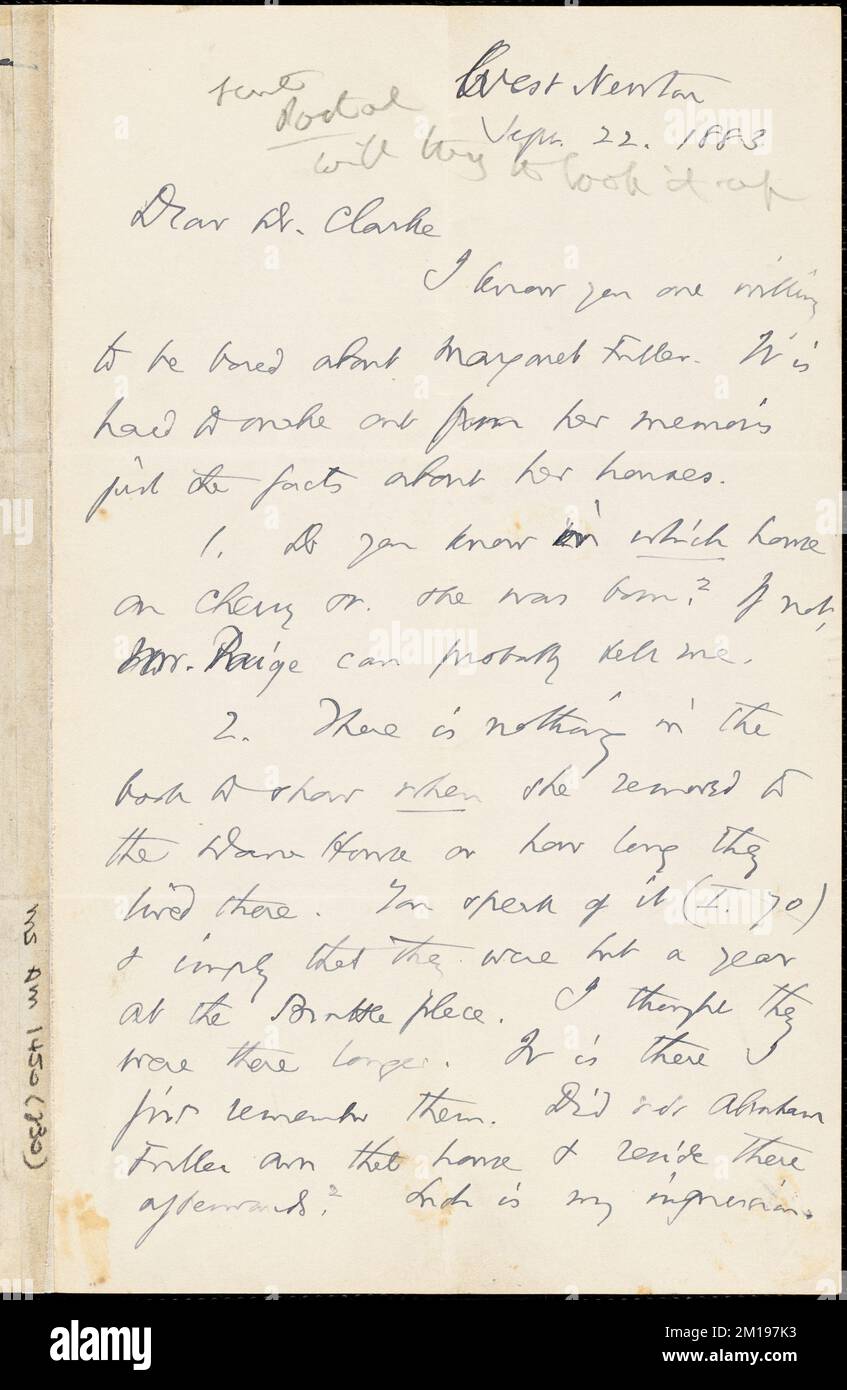 West Newton
Sept. 22. 1883
sent
Postal
will try to look it up
Dear Dr. Clarke
I know you are willing
to be bored about Margaret Fuller. It is
hard to make out from her memoirs
just the facts about her houses.
1. Do you know in which house
on Cherry St. she was born? If not,
Mr. Paige can probably tell me.
2. There is nothing in the
book to show when she removed to
the Dana House or how long they
lived there. You speak of it (I. 70)
& imply that they were but a year
at the Brattle place. I thought they
were there longer. It is there I
first remember them. Did not Abraham
Fuller own that house & reside there
afterwards? Such is my impression.
MS Am 1450 (
alamy
Image ID: 2M197K3
www.alamy.com